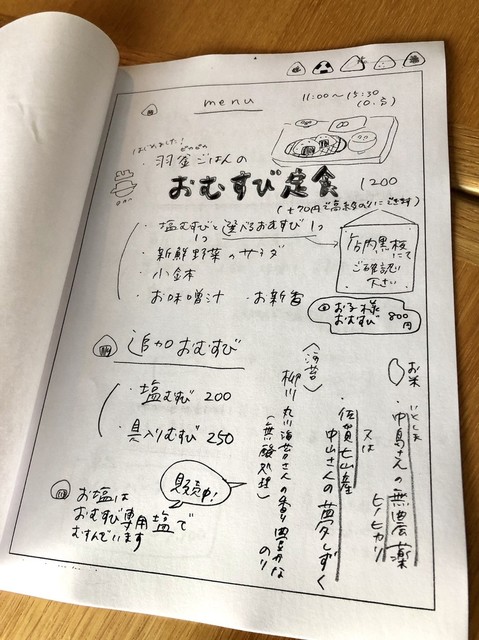 menu
11:00〜15:30
(o.s)
はじめました!
・羽釜ごはんの
おむすび定食
1200
(+70円で高級のりにできます)
・塩むすびと選べるおむすび1つ
1つ
・新鮮野菜のサラダ
・小鉢
・お味噌汁 ・お新香
店内黒板にて
ご確認
下さい
お子様
おむすび
800円
追加おむすび
・塩むすび 200
・具入りむすび 250
お米
いとしま
・中島さんの無農薬
ヒノヒカリ
又は
・佐賀七山産
中山さんの夢しずく
〈海苔〉
柳川丸川海苔さんの香り豊かな
のり
(無酸処理)
販売中!
お塩は
おむすび専用塩で
むすんでいます